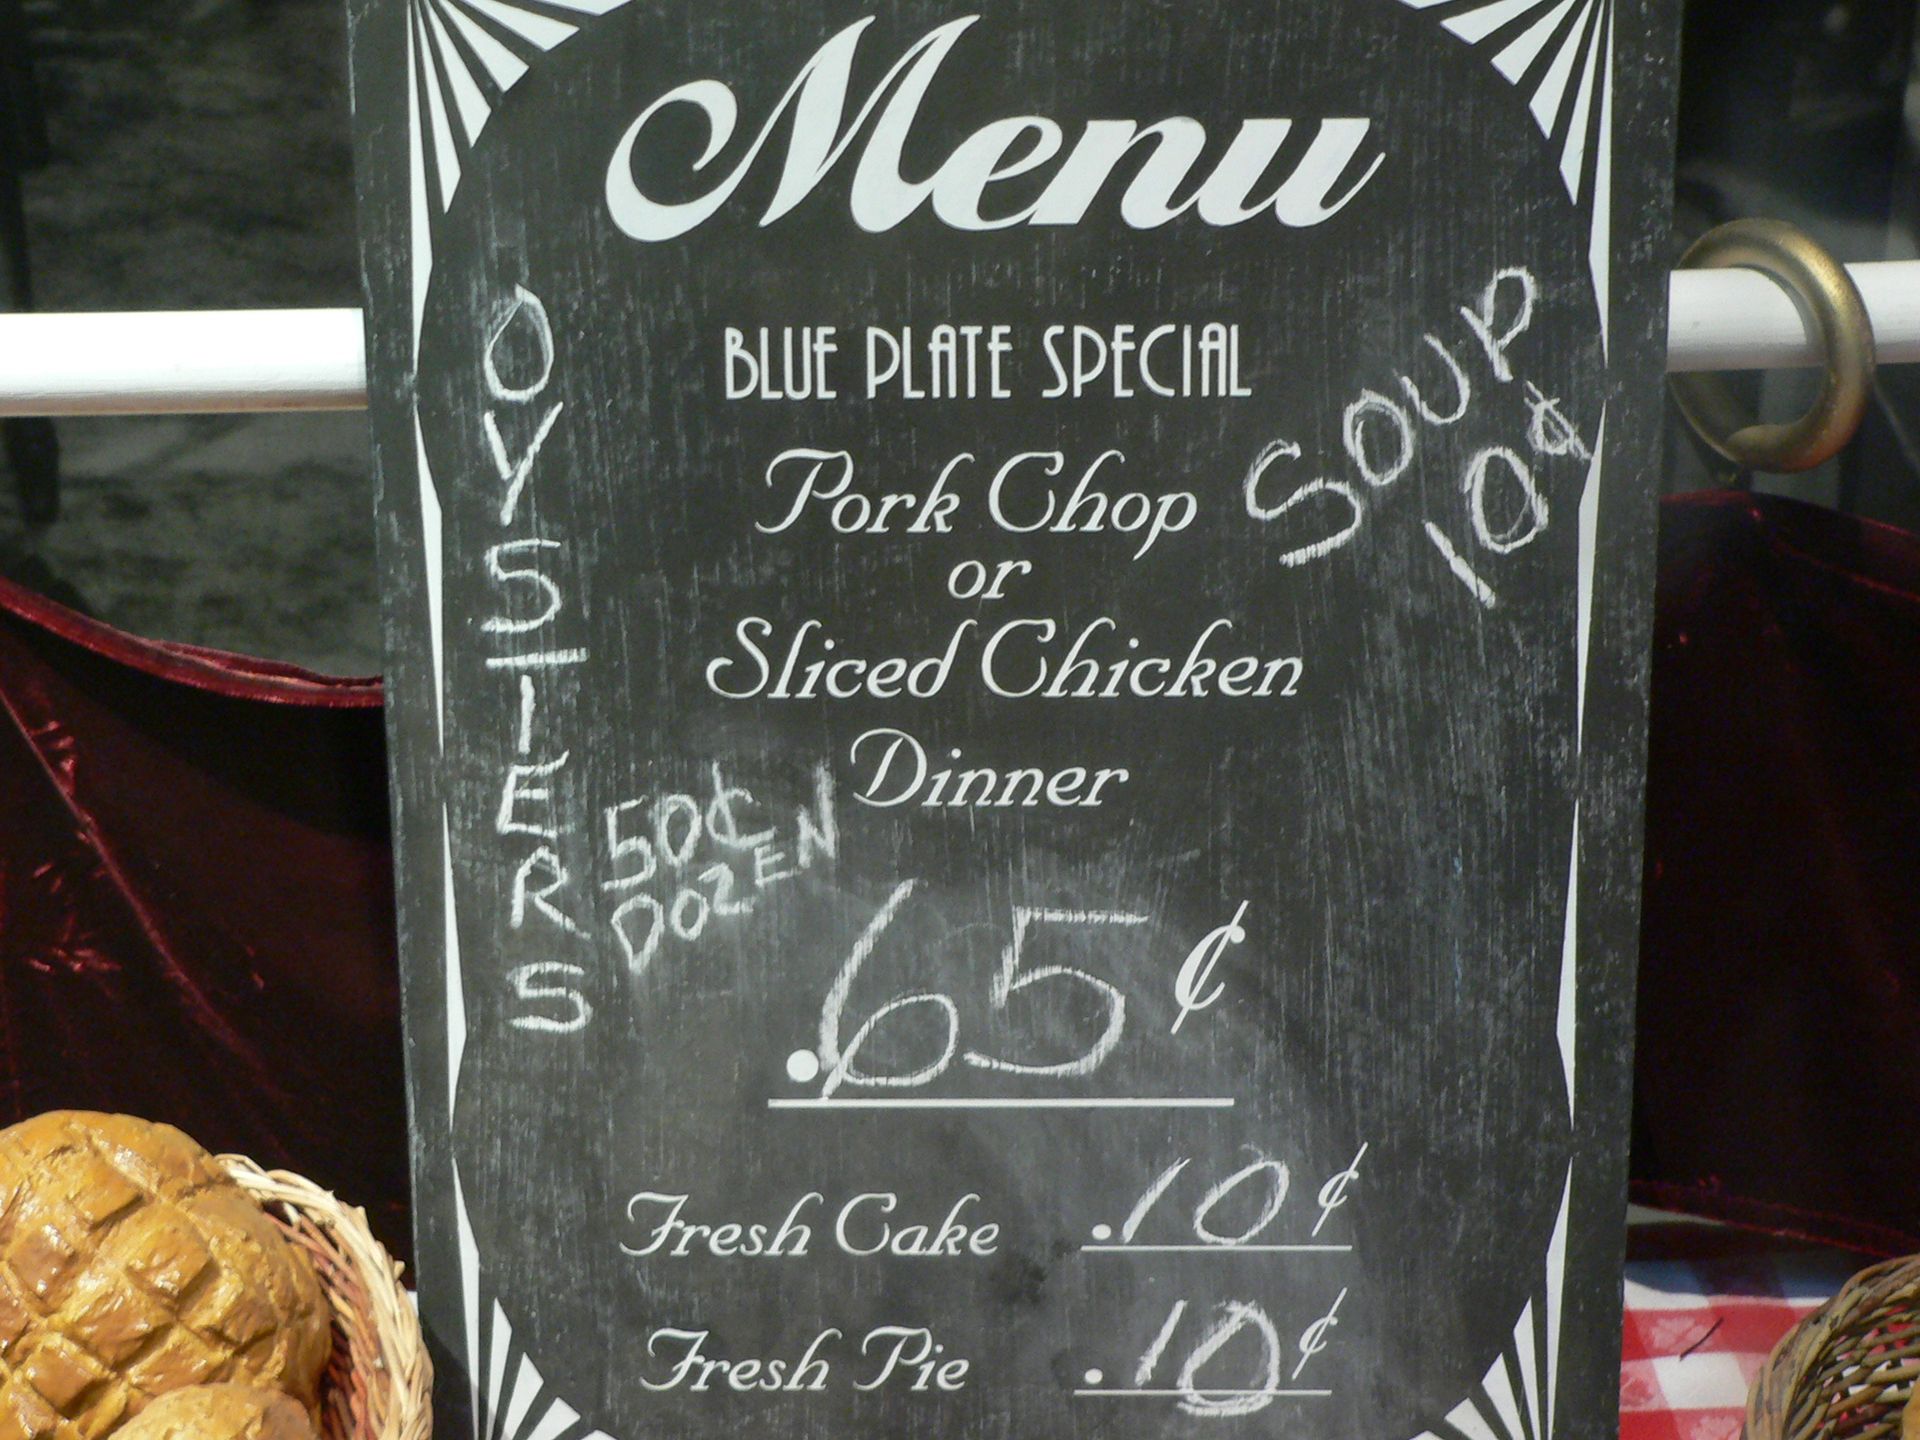 Menu
BLUE PLATE SPECIAL
Pork Chop
or
Sliced Chicken
Dinner
.65¢
Fresh Cake .10¢
Fresh Pie .10¢
OYSTERS
50¢
DOZEN
SOUP
10¢